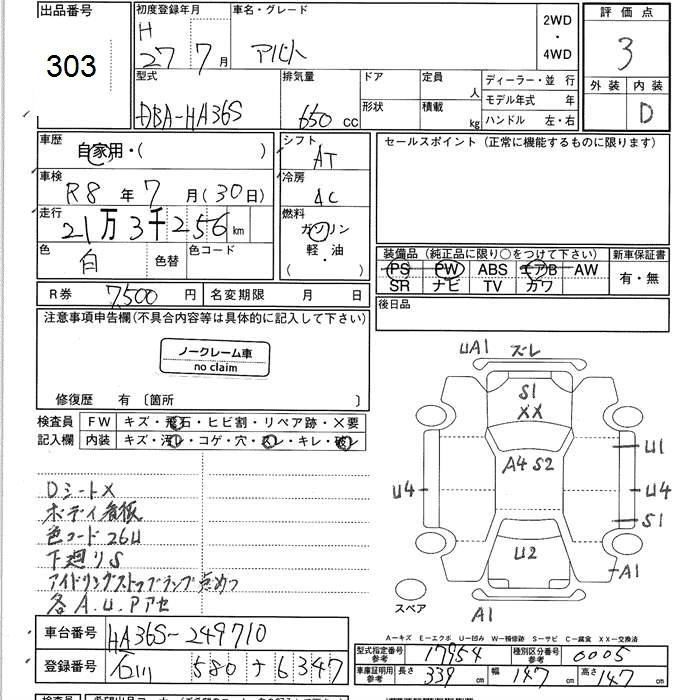 出品番号
303
初度登録年月
H
27 7月
車名・グレード
アルト
2WD
・
4WD
評価点
3
外装 内装
D
型式
DBA-HA36S
排気量
650 cc
ドア
形状
定員 人
積載 kg
ディーラー・並行
モデル年式 年
ハンドル 左・右
車歴
自家用・( )
車検
R8年 7月(30日)
走行
21万3千256km
色
白
色替
色コード
シフト
AT
冷房
AC
燃料
ガソリン
軽・油
( )
セールスポイント(正常に機能するものに限ります)
装備品(純正品に限り○をつけて下さい)
PS PW ABS エアB AW
SR ナビ TV カワ
新車保証書
有・無
R券 7,500円
名変期限 月 日
後日品
注意事項申告欄(不具合内容等は具体的に記入して下さい)
ノークレーム車
no claim
修復歴 有〔箇所 〕
検査員
記入欄
FW キズ・飛石・ヒビ割・リペア跡・×要
内装 キズ・汚レ・コゲ・穴・スレ・キレ・破レ
Dシート×
ボディ看板
色コード26U
下廻りS
アイドリングストップランプ点めつ
各A.U.Pアセ
UA1 ズレ
S1
XX
A4 S2
U1
U4
U4
S1
U2
A1
スペア
A1
A―キズ E―エクボ U―凹み W―補修跡 S―サビ C―腐食 XX―交換済
車台番号 HA36S-249710
登録番号 石川 580 ナ 6347
型式指定番号
参考
17954
種別区分番号
参考
0005
車庫証明用
参考
長さ 339cm
幅 147cm
高さ 147cm